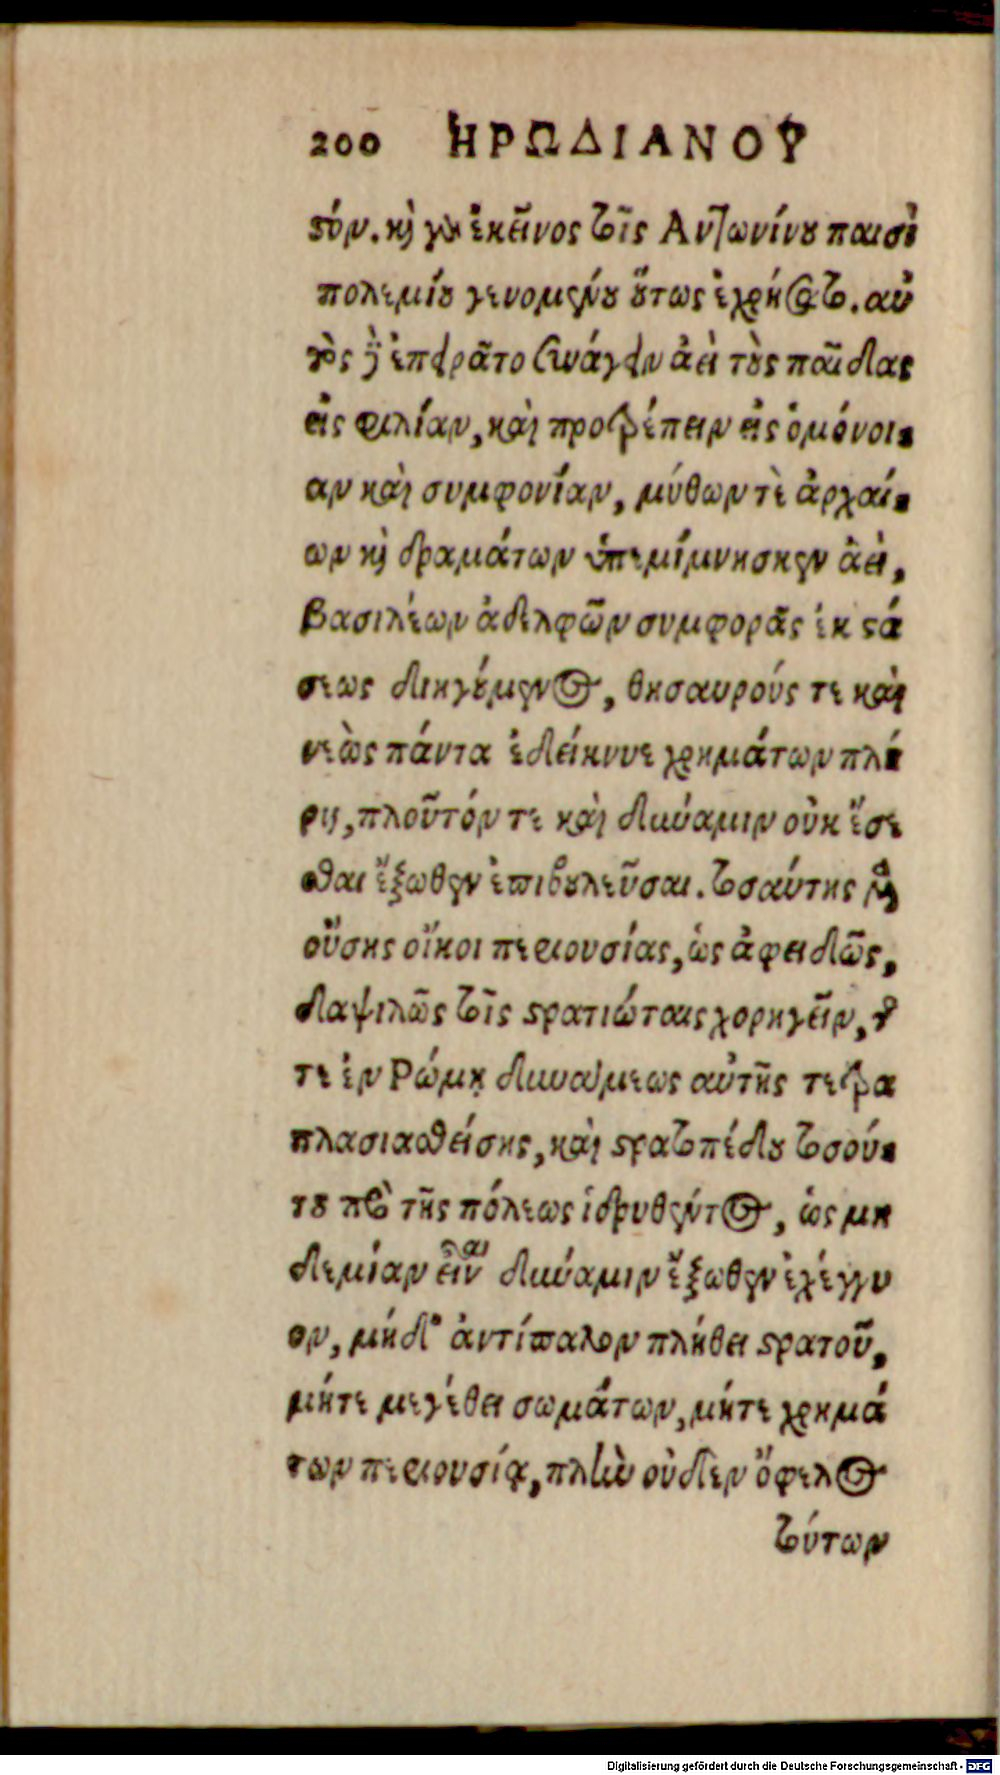 200 ΗΡΩΔΙΑΝΟΥ
στόν. καὶ γὰρ ἐκεῖνος τοῖς Ἀντωνίνου παισὶ
πολεμίου γενομένου οὕτως ἐχρήσατο. αὐ
τὸς δὲ ἐπειρᾶτο συνάγειν ἀεὶ τοὺς παῖδας
εἰς φιλίαν, καὶ προτρέπειν εἰς ὁμόνοι-
αν καὶ συμφονίαν, μύθων τὲ ἀρχαί-
ων καὶ δραμάτων ὑπεμίμνησκεν ἀεὶ,
βασιλέων ἀδελφῶν συμφορᾶς ἐκ στά
σεως διηγούμενος, θησαυρούς τε καὶ
νεὼς πάντα ἐδείκνυε χρημάτων πλή
ρη, πλοῦτόν τε καὶ δύναμιν οὐκ ἔσε
σθαι ἔξωθεν ἐπιβουλεῦσαι. τοσαύτης μὲν
οὔσης οἴκοι περιουσίας, ὡς ἀφειδῶς,
δαψιλῶς τοῖς στρατιώταις χορηγεῖν, τῆς
τε ἐν Ρώμῃ δυνάμεως αὐτῆς τετρα
πλασιασθείσης, καὶ στρατοπέδου τοσού-
του πρὸ τῆς πόλεως ἱδρυθέντος, ὡς μη
δεμίαν εἶναι δύναμιν ἔξωθεν ἐχέγγυ
ον, μήδ' ἀντίπαλον πλήθει στρατοῦ,
μήτε μεγέθει σωμάτων, μήτε χρημά
των περιουσίᾳ, πλὴν οὐδὲν ὄφελος
τούτων
Digitalisierung gefördert durch die Deutsche Forschungsgemeinschaft - DFG